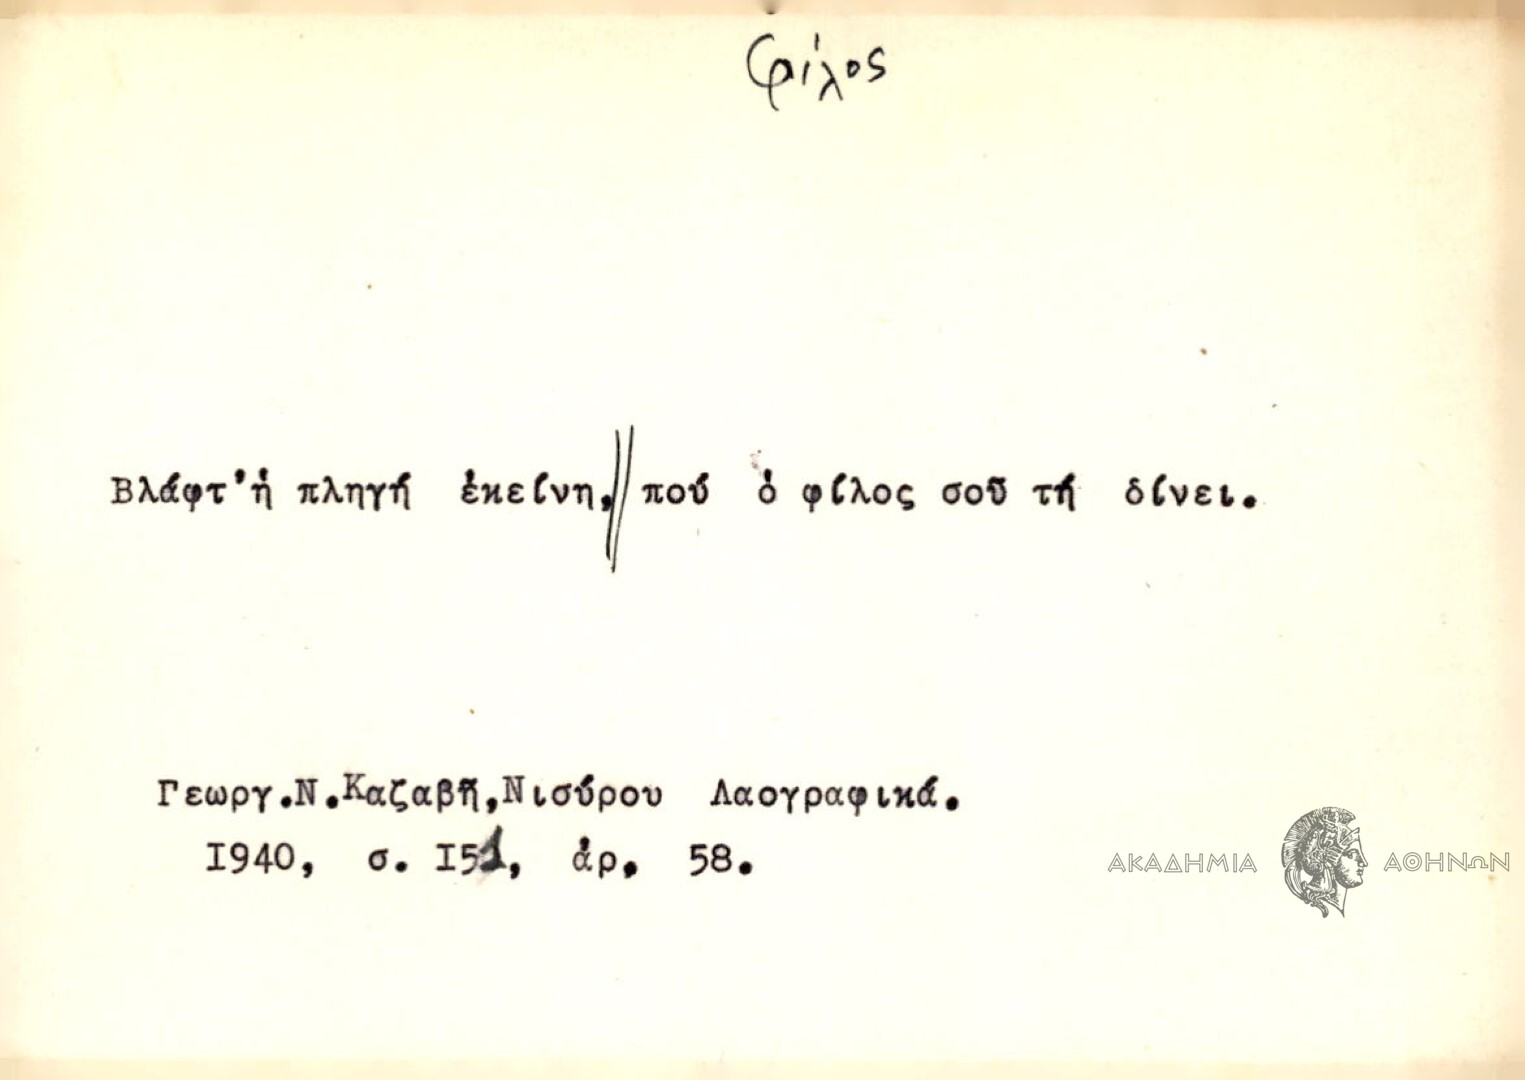 φίλος
Βλάφτ'ἡ πληγή ἐκείνη,// πού ὁ φίλος σοῦ τή δίνει.
Γεωργ.Ν.Καζαβῆ,Νισύρου Λαογραφικά.
I940, σ. I51, ἀρ. 58.
ΑΚΑΔΗΜΙΑ ΑΘΗΝΩΝ